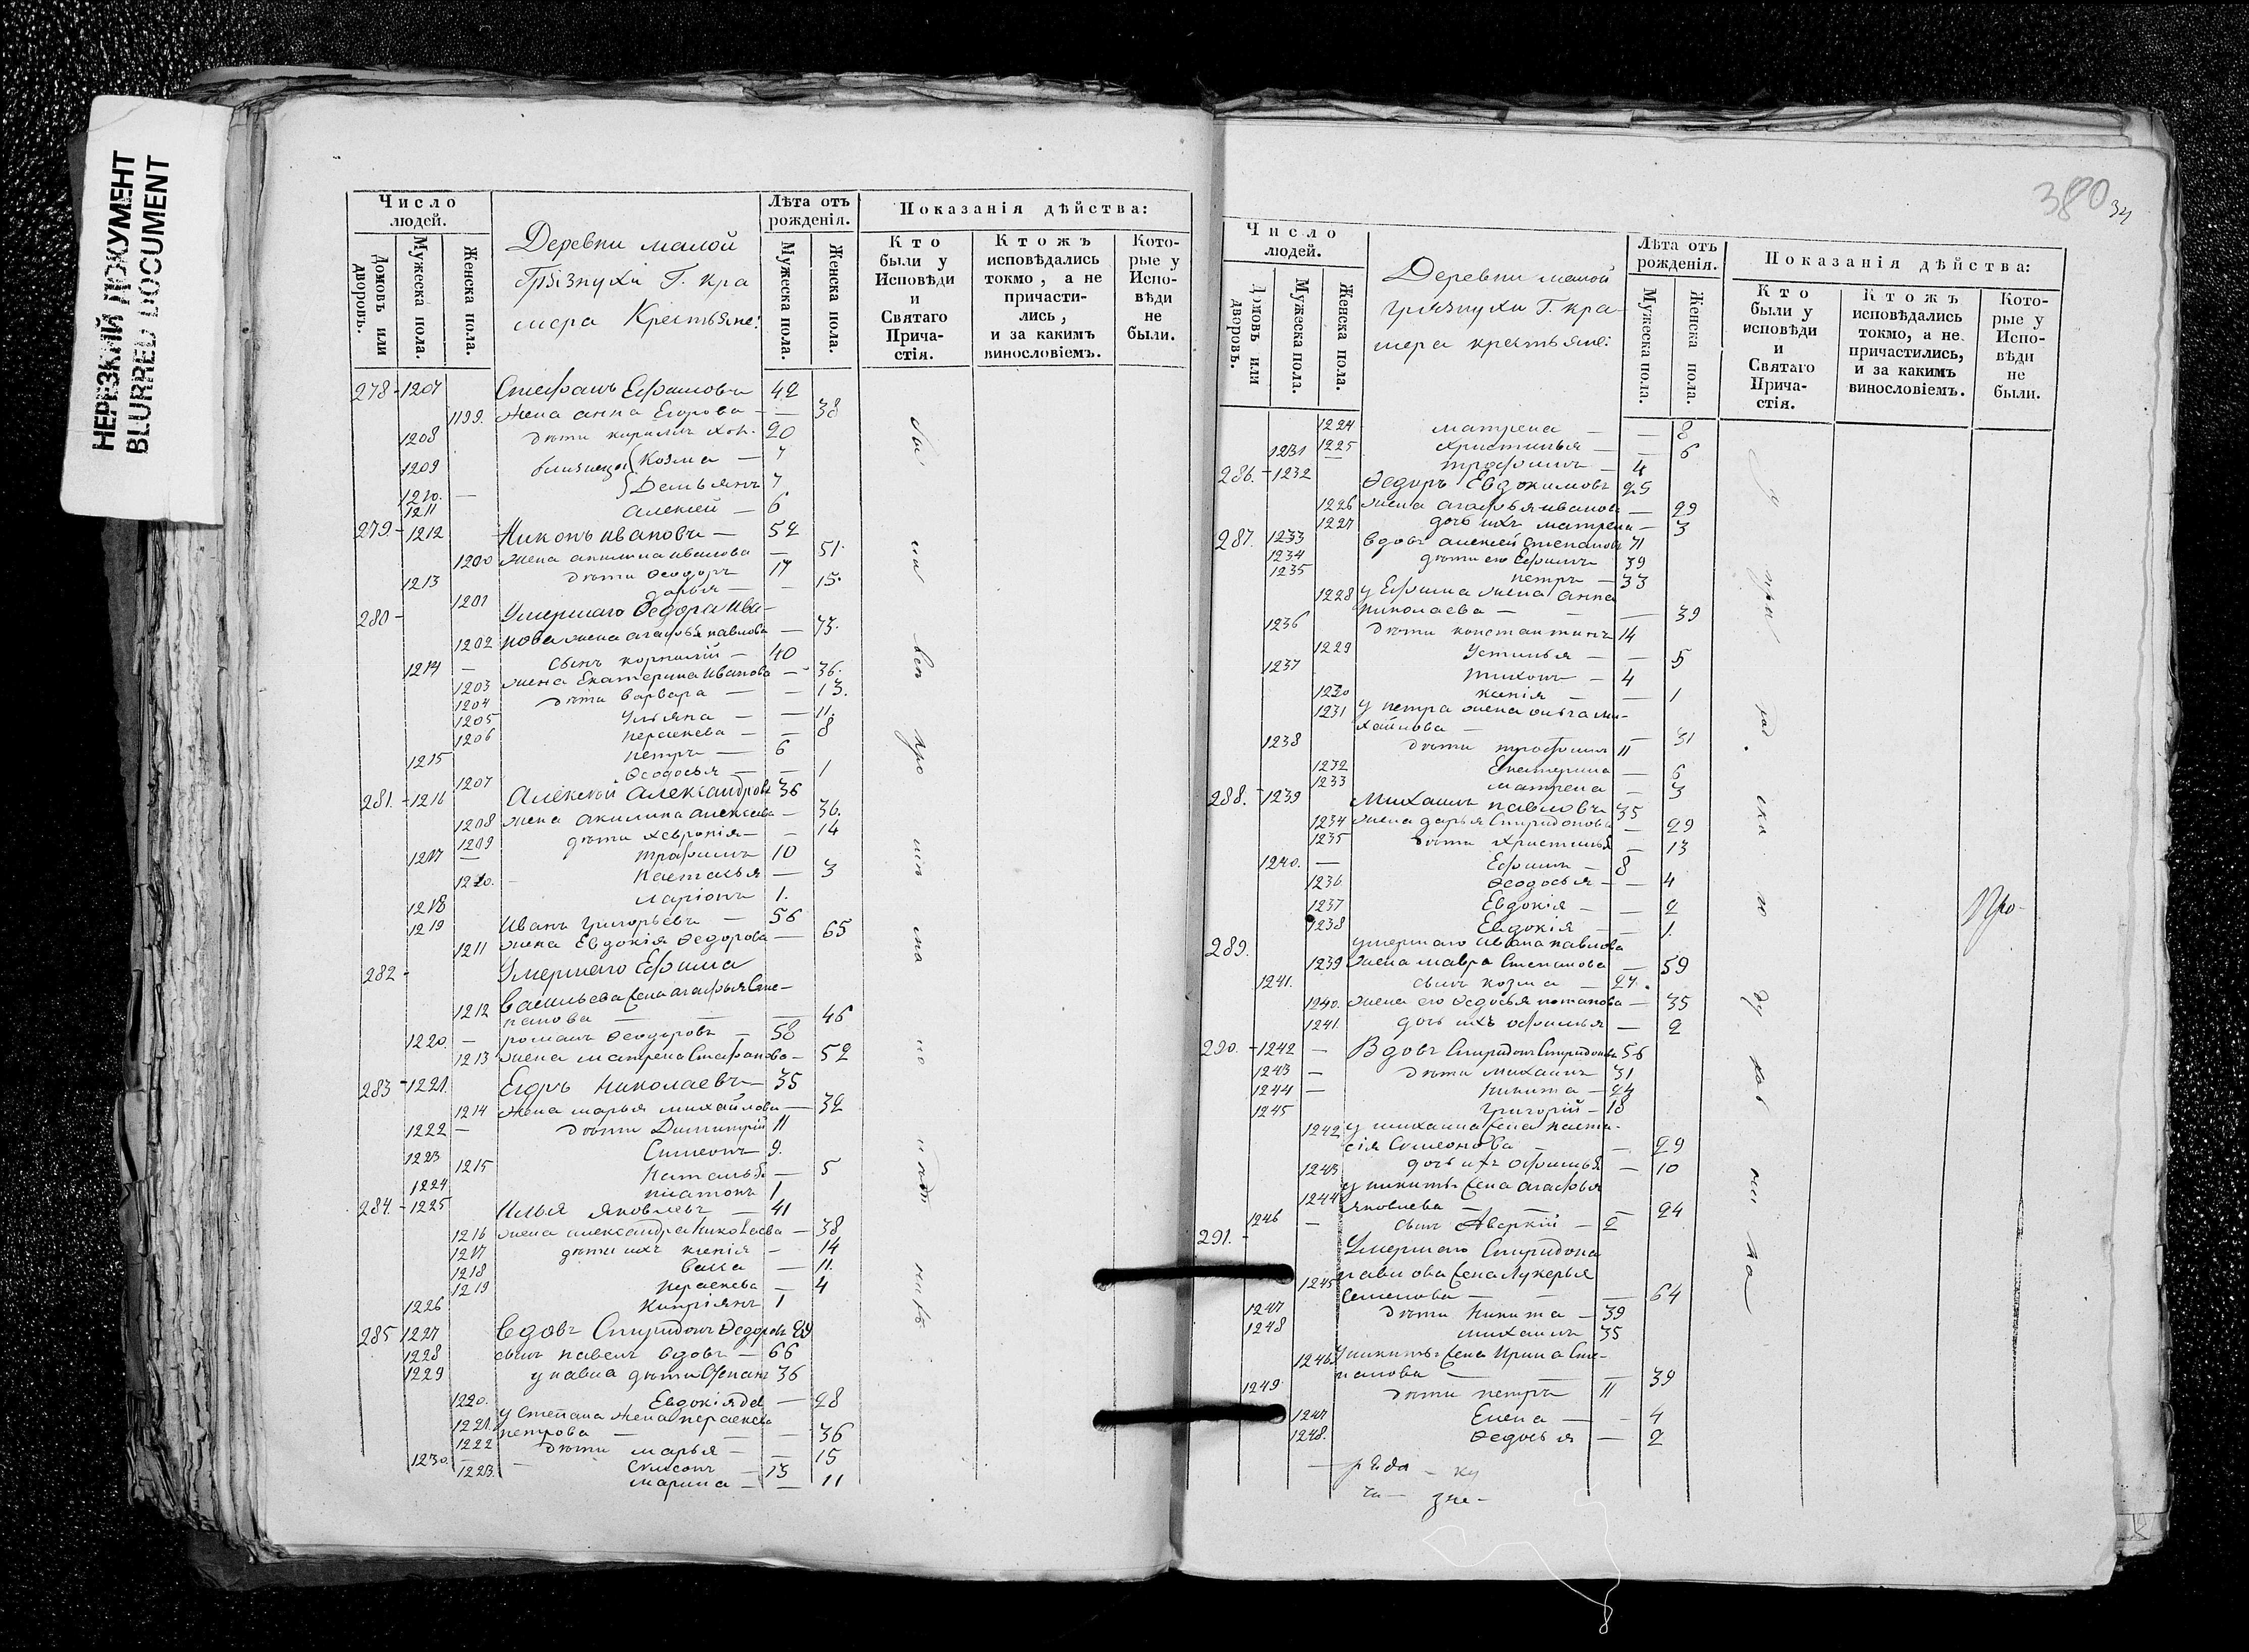 НЕРЕЗКИЙ ДОКУМЕНТ
BLURRED DOCUMENT
Число людей.
Домовъ или дворовъ.
Мужеска пола.
Женска пола.
Деревни малой
Грязнухи Г. Кра
мера Крестьяне:
Лѣта отъ рожденія.
Мужеска пола.
Женска пола.
Показанія дѣйства:
Кто были у Исповѣди и Святаго Прича-стія.
Ктожъ исповѣдались токмо, а не причасти-лись, и за какимъ винословіемъ.
Кото-рые у Испо-вѣди не были.
278 - 1207 Стефанъ Ефимовъ 42
1199. жена анна Егорова — 38
1208 дѣти кирилъ 20
1209 близнецы Козма — 7
1210. — Демьянъ 7
1211 алексей — 6
279 - 1212 Никонъ ивановъ — 52
1200 жена акилина иванова — 51.
1213 дѣти Ѳеодоръ 17
1201 дарья — — 15.
280 - Умершаго Ѳедора Ива-
1202 нова жена агафья павлова — 73.
1214 — сынъ корнилій — 40
1203 жена Екатерина Иванова — 36.
1204 дѣти варвара — — 13.
1205 Ульяна — — 11.
1206 пераскева — — 8
1215 петръ — 6
1207 Ѳеодосья — — 1
281. - 1216 Алексѣй Александровъ 36
1208 жена акилина алексеева — 36.
1209 дѣти хевронія — — 14
1217 — трафимъ 10
1210. - настасья — 3
1218 ларіонъ 1.
1219 Иванъ Григорьевъ — 56
1211 жена Евдокія Ѳедорова — 65
282 - Умершаго Ефима
1212 Васильева жена агафья Сте-
панова — — — 46
1220. — романъ Ѳеодоровъ — 58
1213 жена матрена Стефанова — 52
283 - 1221. Егоръ Николаевъ — 35
1214 жена марья михайлова — 32
1222 — дѣти Димитрій 11
1223 Симеонъ 9.
1215 Наталья — 5
1224 платонъ 1
284. - 1225 Илья яковлевъ — 41
1216 жена александра Николаева — 38
1217 дѣти ихъ ксенія — 14
1218 васса — 11.
1219 перасковa — 4
1226 Кипріянъ 1
285 1227 вдовъ Спиридонъ Ѳедоровъ
1228 сынъ павелъ вдовъ — 66
1229 у павла дѣти Степанъ 36
1220. Евдокія — 28
1221. у степана жена перасковa
петрова — — — 36
1222 дѣти марья — — 15
1230. — Симеонъ — 13
1223. марина — — 11
380
34
Число людей.
Домовъ или дворовъ.
Мужеска пола.
Женска пола.
Деревни малой
Грязнухи Г. Кра-
мера крестьяне:
Лѣта отъ рожденія.
Мужеска пола.
Женска пола.
Показанія дѣйства:
Кто были у исповѣди и Святаго Прича-стія.
Ктожъ исповѣдались токмо, а не причастились, и за какимъ винословіемъ.
Кото-рые у Испо-вѣди не были.
1224 матрена — — 8
1225 христинья — — 6
1231 — трофимъ — 4
286. - 1232 Ѳедоръ Евдокимовъ 25
1226 жена агафья иванова — 29
1227 дочь ихъ матрена — 3
287. 1233 вдовъ алексей степановъ 71
1234 дѣти его Ефимъ 39
1235 петръ — 33
1228 у Ефима жена анна
николаева — — — 39
1236 дѣти константинъ 14
1229 Устинья — — 5
1237 тихонъ — 4
1230 ксенія — — 1
1231 у петра жена ольга ми-
хайлова — — 31
1238 дѣти трофимъ 11
1232 Екатерина — 6
1233 матрена — 3
288. - 1239 Михаилъ павловъ 35
1234 жена дарья Спиридонова — 29
1235 дѣти христинья — 13
1240. — Ефимъ — 8
1236 Ѳеодосья — — 4
1237 Евдокія — — 2
1238 Евдокія — — 1.
289. умершаго ивана павлова
1239 жена мавра Степанова — 59
1241. сынъ козма — 27.
1240. жена его Ѳедосья потапова — 35
1241. дочь ихъ афимья — 2
290. - 1242 — Вдовъ Спиридонъ Спиридоновъ 56
1243 — дѣти михаилъ 31
1244 — никита — 24
1245 Григорій — 18
1242 у михаила жена наста-
сія Симеонова — — 29
1243 дочь ихъ афимья — 10
у никиты жена агафья
1244 яковлева — — — 24
1246 — сынъ Аверкій — 2
291. - Умершаго Спиридона
павлова жена Лукерья
1245 Семенова — — — 64
1247 дѣти Никита — 39
1248 михаилъ 35
1246 у никиты жена Ирина Сте-
панова — — — 39
1249 дѣти петръ 11
1247 Елена — — 4
1248. Ѳедосья — 2